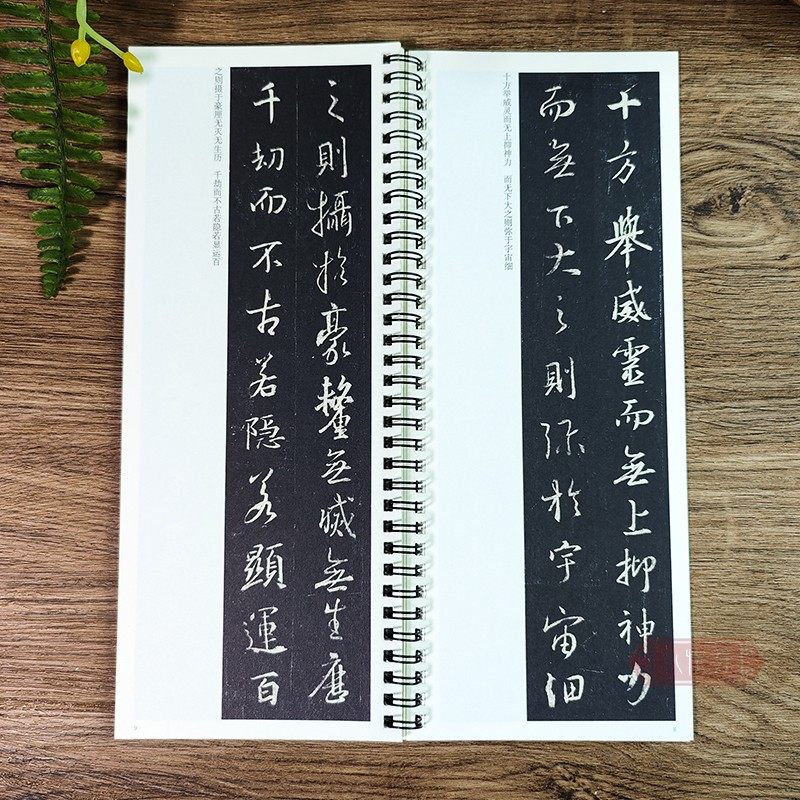 十方舉威靈而無上抑神力
而無下大之則彌於宇宙細
十方举威灵而无上抑神力 而无下大之则弥于宇宙细
8
之則攝於豪釐無滅無生歷
千劫而不古若隱若顯運百
之则摄于豪厘无灭无生历 千劫而不古若隐若显运百
9